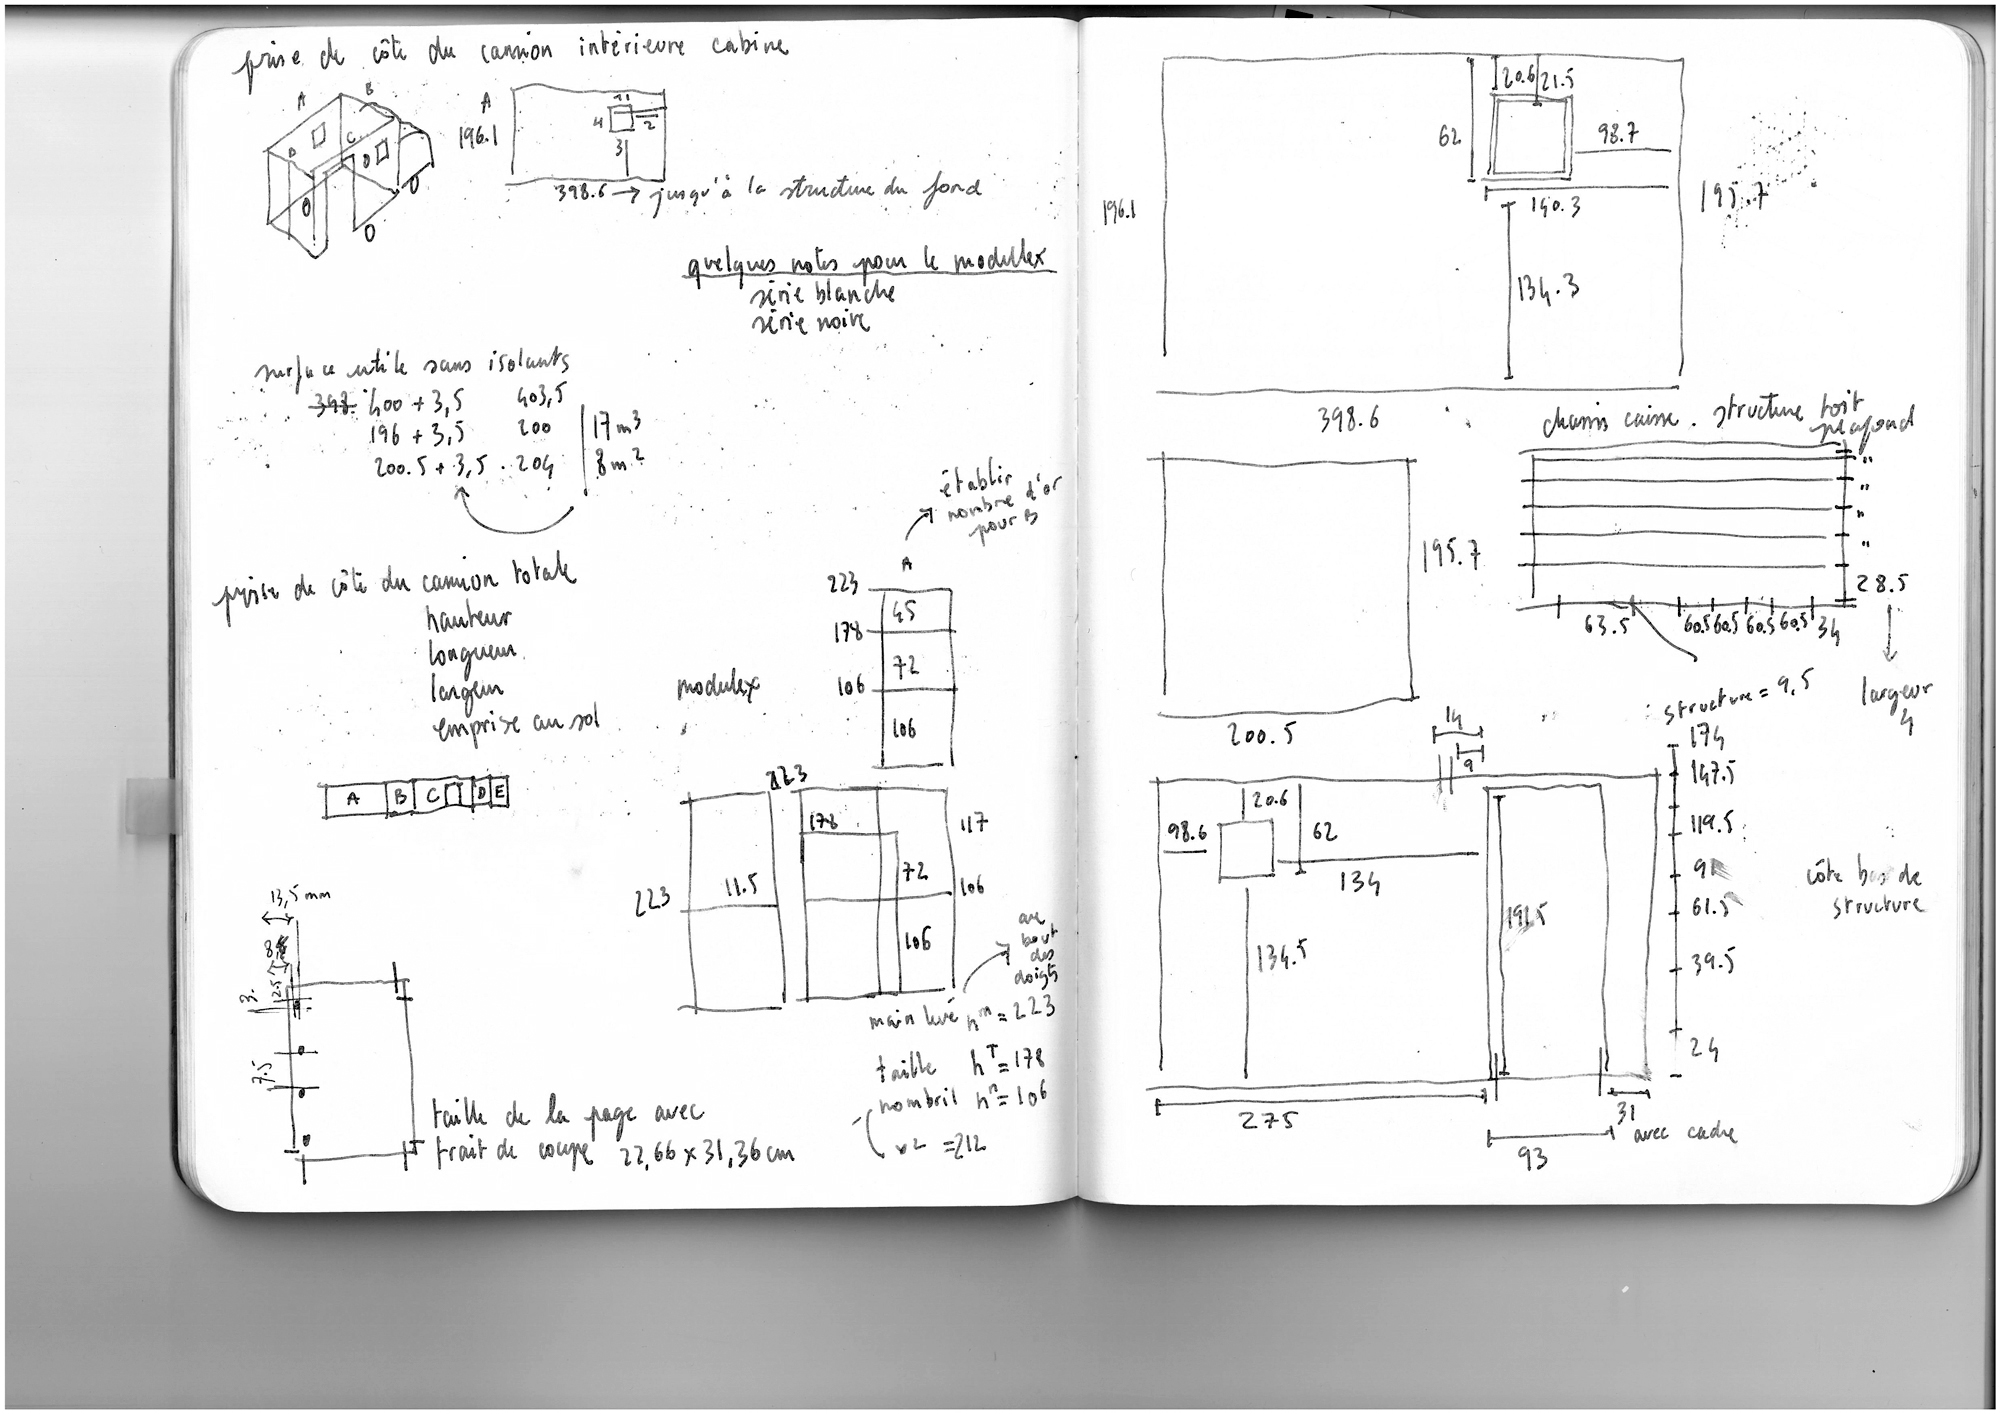 prise de côte du camion intérieure cabine
A
B
C
D
D
A
196.1
1
4
2
3
398.6 → jusqu'à la structure du fond
quelques notes pour le modullex
série blanche
série noire
surface utile sans isolants
398. 400 + 3,5 403,5
196 + 3,5 200
200.5 + 3,5 . 204
17 m³
8 m²
établir
nombre d'or
pour B
A
prise de côte du camion totale
hauteur
longueur
largeur
emprise au sol
223
45
178
72
106
106
modulex
A B C D E
223
178
117
72
223
11.5
106
106
13,5 mm
3.
12.5
7.5
au
bout
des
doigts
main levé hᵐ = 223
taille hᵀ = 178
nombril hⁿ = 106
v2 = 212
taille de la page avec
trait de coupe 22,66 x 31,36 cm
20.6
21.5
62
98.7
196.1
140.3
195.7
134.3
398.6
chassis caisse . structure toit
plafond
"
"
"
"
28.5
63.5
60.5
60.5
60.5
60.5
34
195.7
200.5
structure = 9,5
largeur
4
14
9
174
147.5
119.5
91
61.5
39.5
24
côte bas de
structure
20.6
98.6
62
134
191.5
134.5
275
31
avec cadre
93